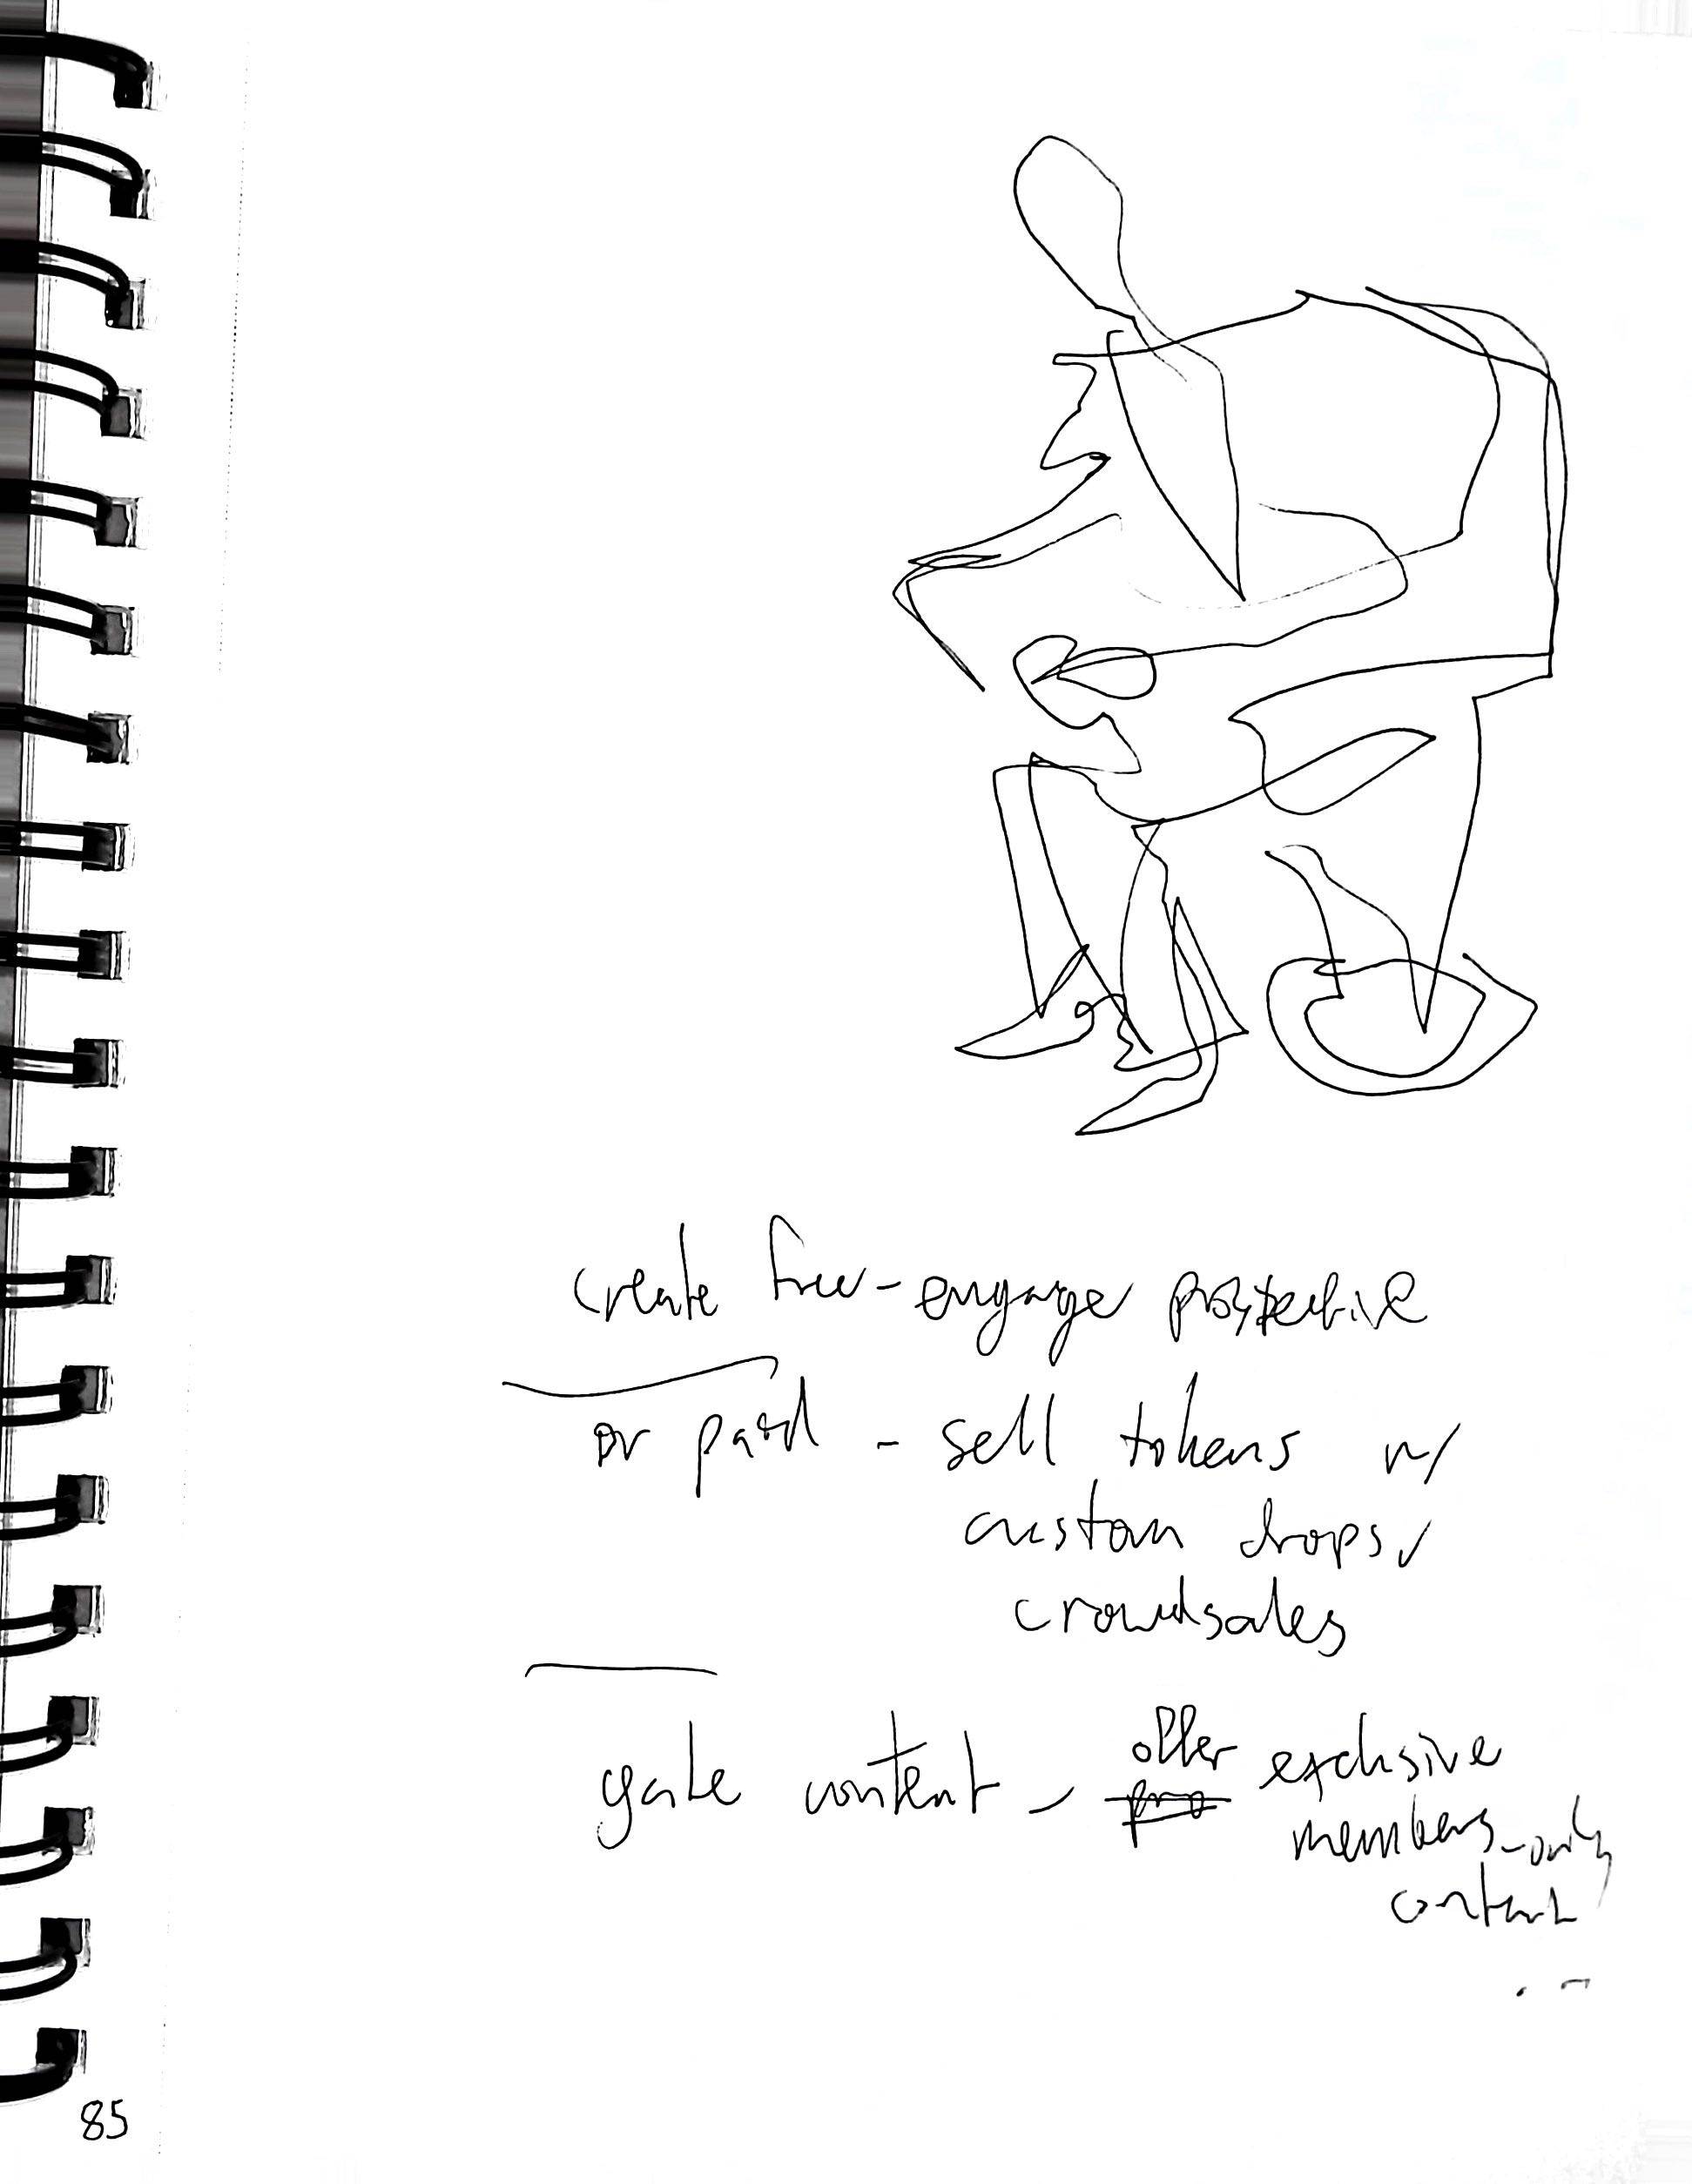 create free - engage prospective
or paid - sell tokens w/
custom drops,
crowdsales
gate content - offer exclusive
members-only
content
85